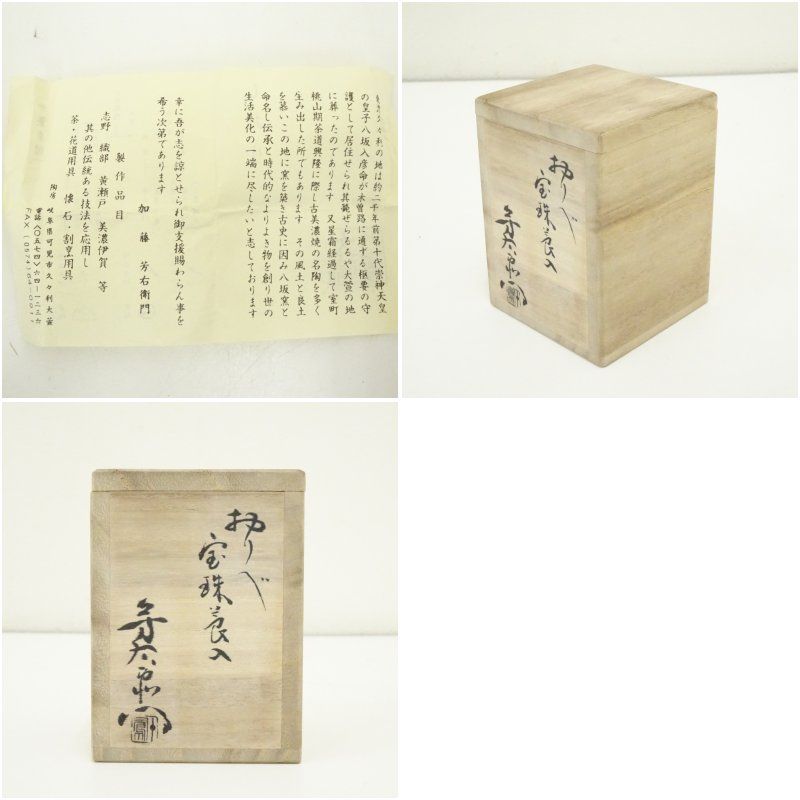 久々利の地は約二千年前第十代崇神天皇
の皇子八坂入彦命が木曽路に通ずる枢要の守
護として居住せられ其薨ぜらるるや大萱の地
に葬ったのであります 又星霜経過して室町
桃山期茶道興隆に際し古美濃焼の名陶を多く
生み出した所でもあります その風土と良土
を慕いこの地に窯を築き古史に因み八坂窯と
命名し伝承と時代的なよりよき物を創り世の
生活美化の一端に尽したいと志しております
幸に吾が志を諒とせられ御支援賜わらん事を
希う次第であります
加藤 芳右衛門
製作品目
志野 織部 黄瀬戸 美濃伊賀 等
其の他伝統ある技法を応用し
茶・花道用具 懐石・割烹用具
陶房 岐阜県可児市久々利大萱
電話(〇五七四)六四―一二三六
FAX(0574)64
おりべ
宝珠蓋入
芳右衛門
おりべ
宝珠蓋入
芳右衛門